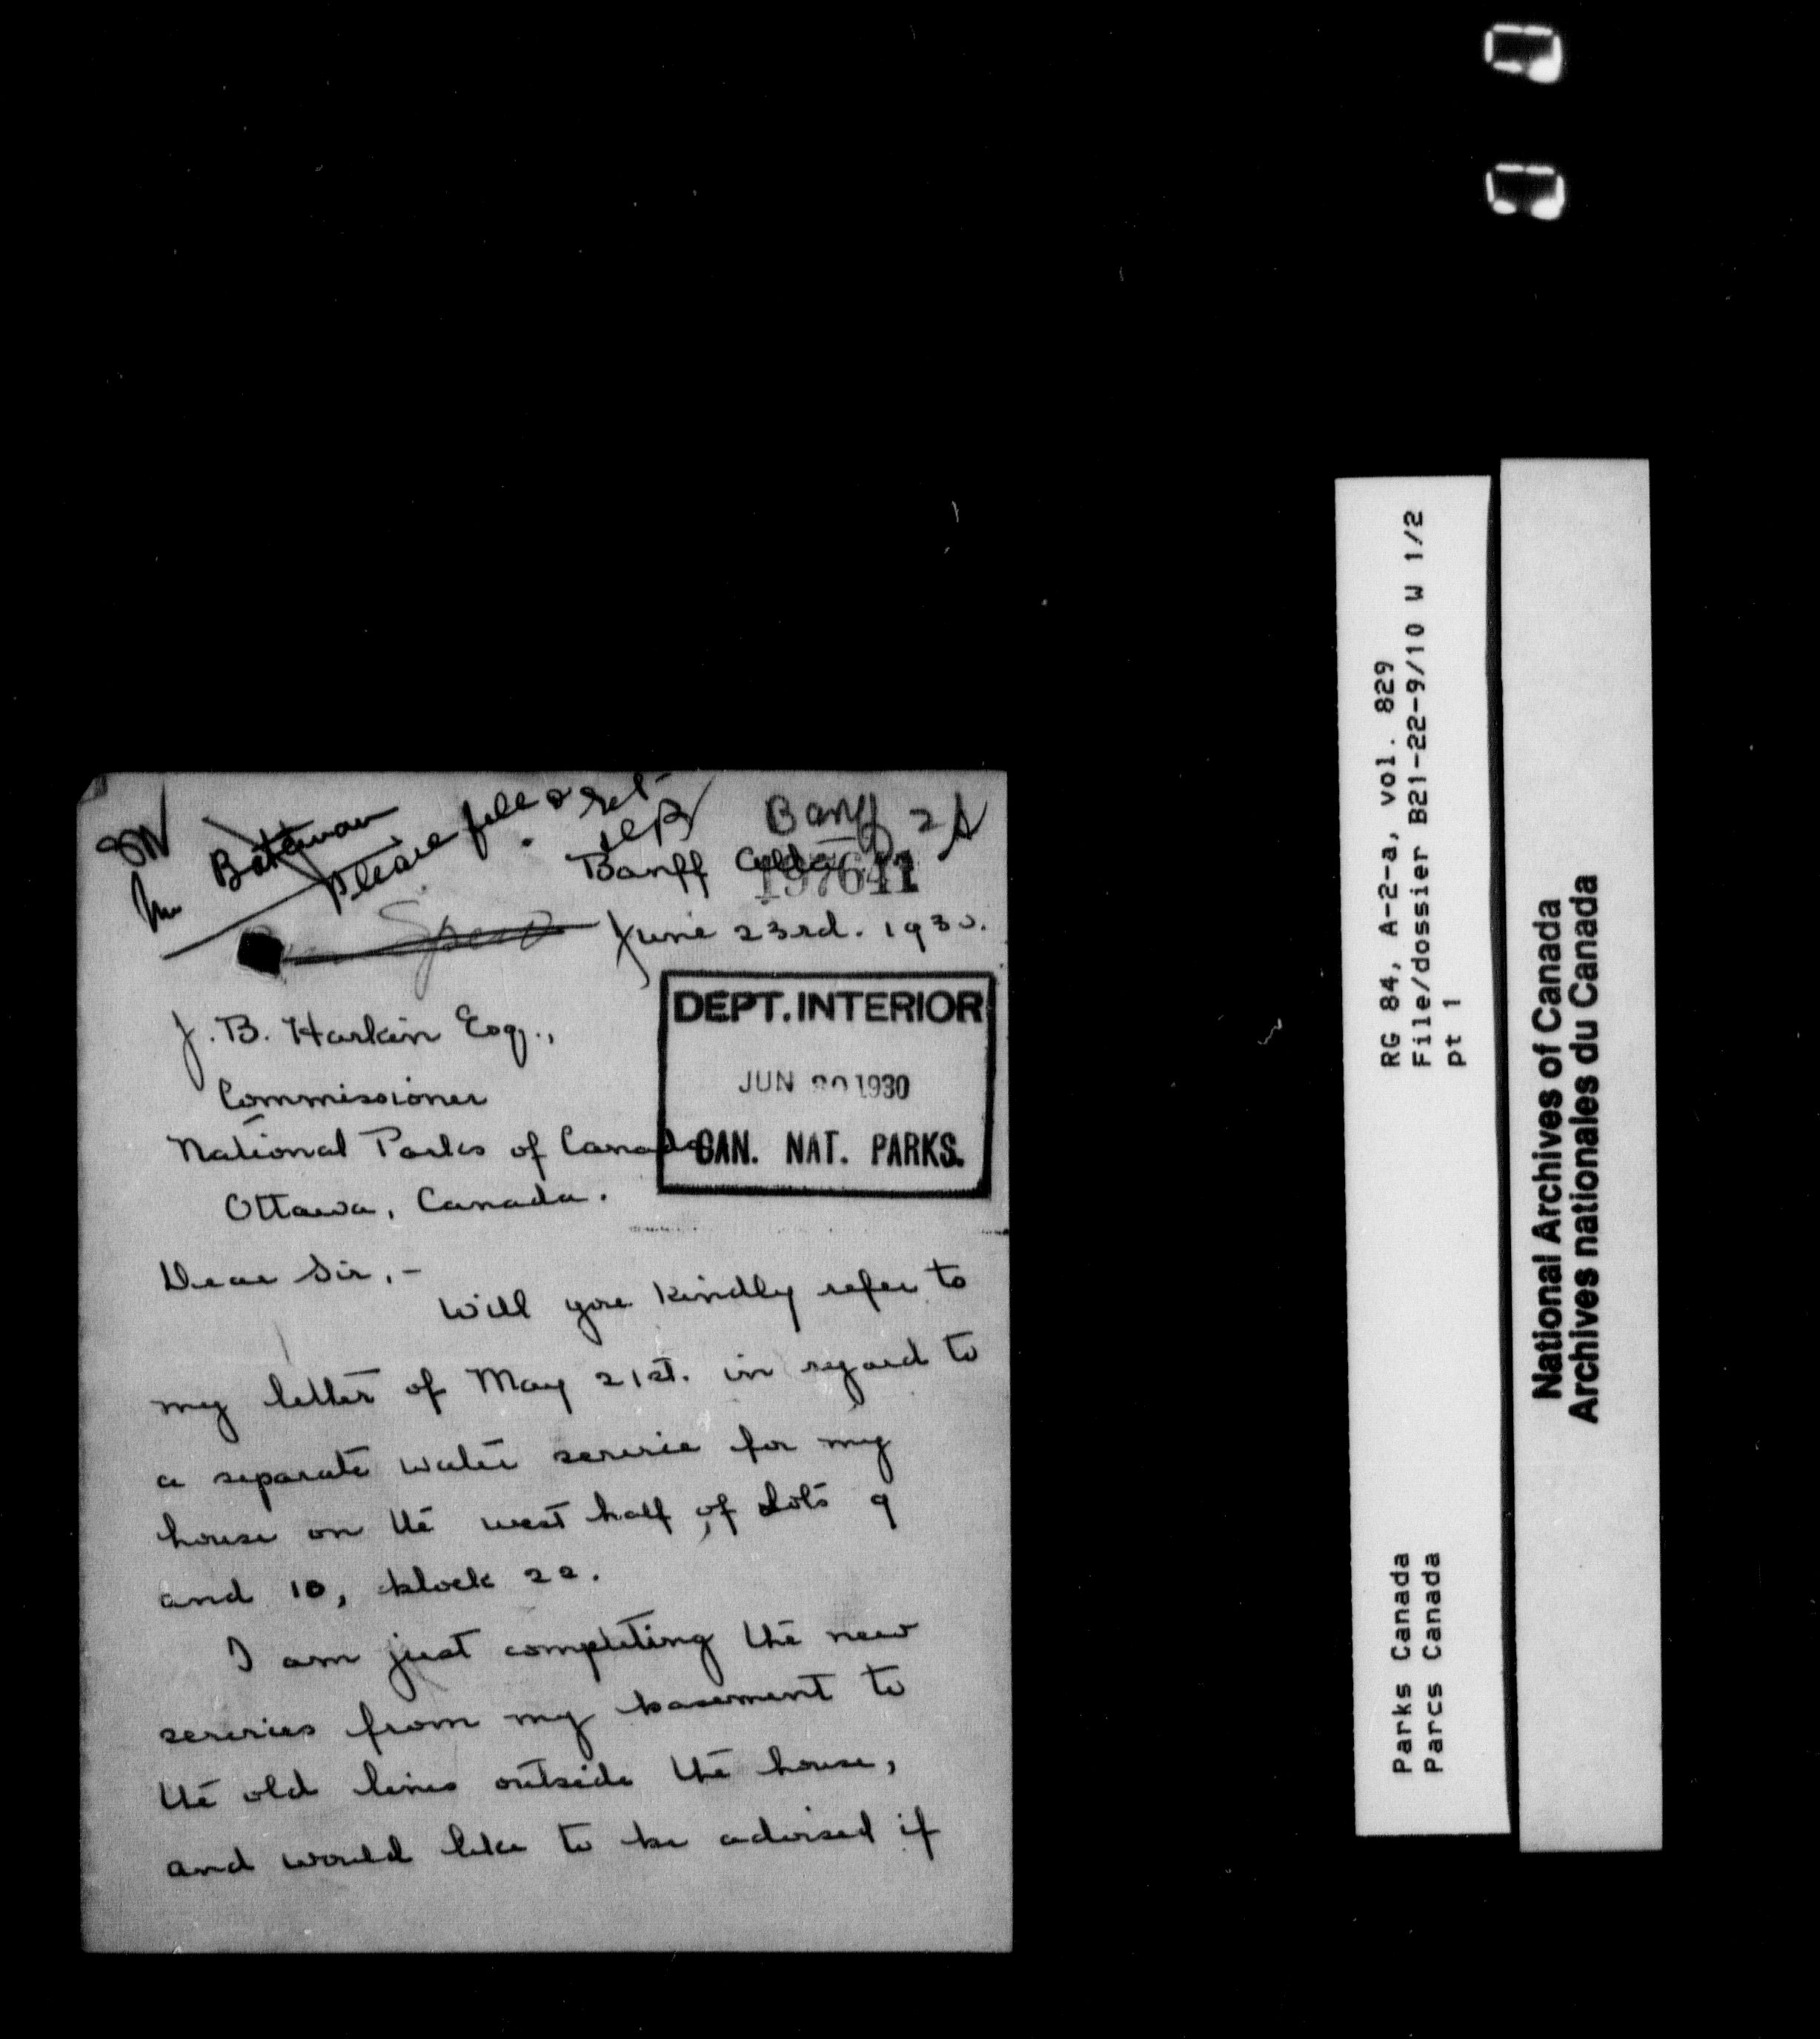 Bateman
Please file & ret
Banff 2A
Banff Alda
197641
Speed
June 23rd. 1930.
DEPT. INTERIOR
JUN 1930
CAN. NAT. PARKS.
J. B. Harkin Esq.,
Commissioner
National Parks of Canada
Ottawa, Canada.
Dear Sir, -
Will you kindly refer to
my letter of May 21st. in regard to
a separate water service for my
house on the west half of Lots 9
and 10, block 22.
I am just completing the new
services from my basement to
the old lines outside the house,
and would like to be advised if
RG 84, A-2-a, vol. 829
File/dossier B21-22-9/10 W 1/2
pt 1
Parks Canada
Parcs Canada
National Archives of Canada
Archives nationales du Canada